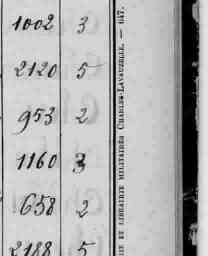 1002 3
2120 5
953 2
1160 3
658 2
2188 5
RIE ET LIBRAIRIE MILITAIRES CHARLES-LAVAUZELLE. — 647.